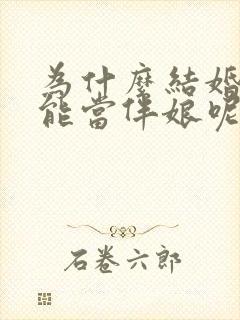 為什麼結婚
能當伴娘呢
石卷六郎